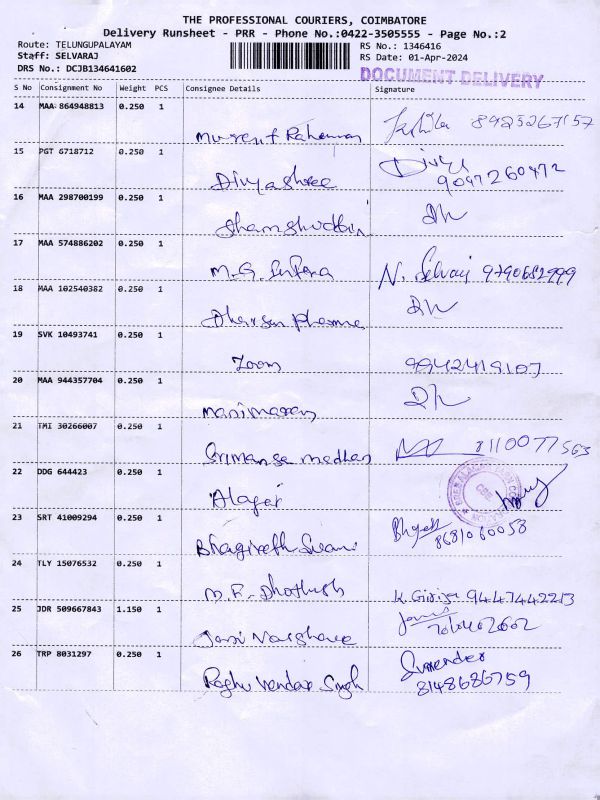 THE PROFESSIONAL COURIERS, COIMBATORE
Delivery Runsheet - PRR - Phone No.:0422-3505555 - Page No.:2
Route: TELUNGUPALAYAM
RS No.: 1346416
Staff: SELVARAJ
RS Date: 01-Apr-2024
DRS No.: DCJB134641602
DOCUMENT DELIVERY
S No Consignment No Weight PCS Consignee Details Signature
14 MAA 864948813 0.250 1
Rahman 8923267157
15 PGT 6718712 0.250 1
Divyashree Divya
9047260472
16 MAA 298700199 0.250 1
Shamshuddin
17 MAA 574886202 0.250 1
M.G. N. Selvaj 9790682999
18 MAA 102540382 0.250 1
Dharsan Pharma
19 SVK 10493741 0.250 1
Zoom 9942419107
20 MAA 944357704 0.250 1
Manimaran
21 TMI 30266007 0.250 1
8110077563
22 DDG 644423 0.250 1
Alagar
23 SRT 41009294 0.250 1
Bhagireth Swami
8681060058
24 TLY 15076532 0.250 1
K. Girija 9447442213
25 JDR 509667843 1.150 1
26 TRP 8031297 0.250 1
Raghu vendar Singh Surender
8148686759